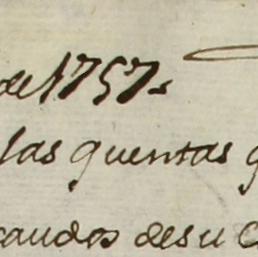 de 1757
las quentas
caudos de su